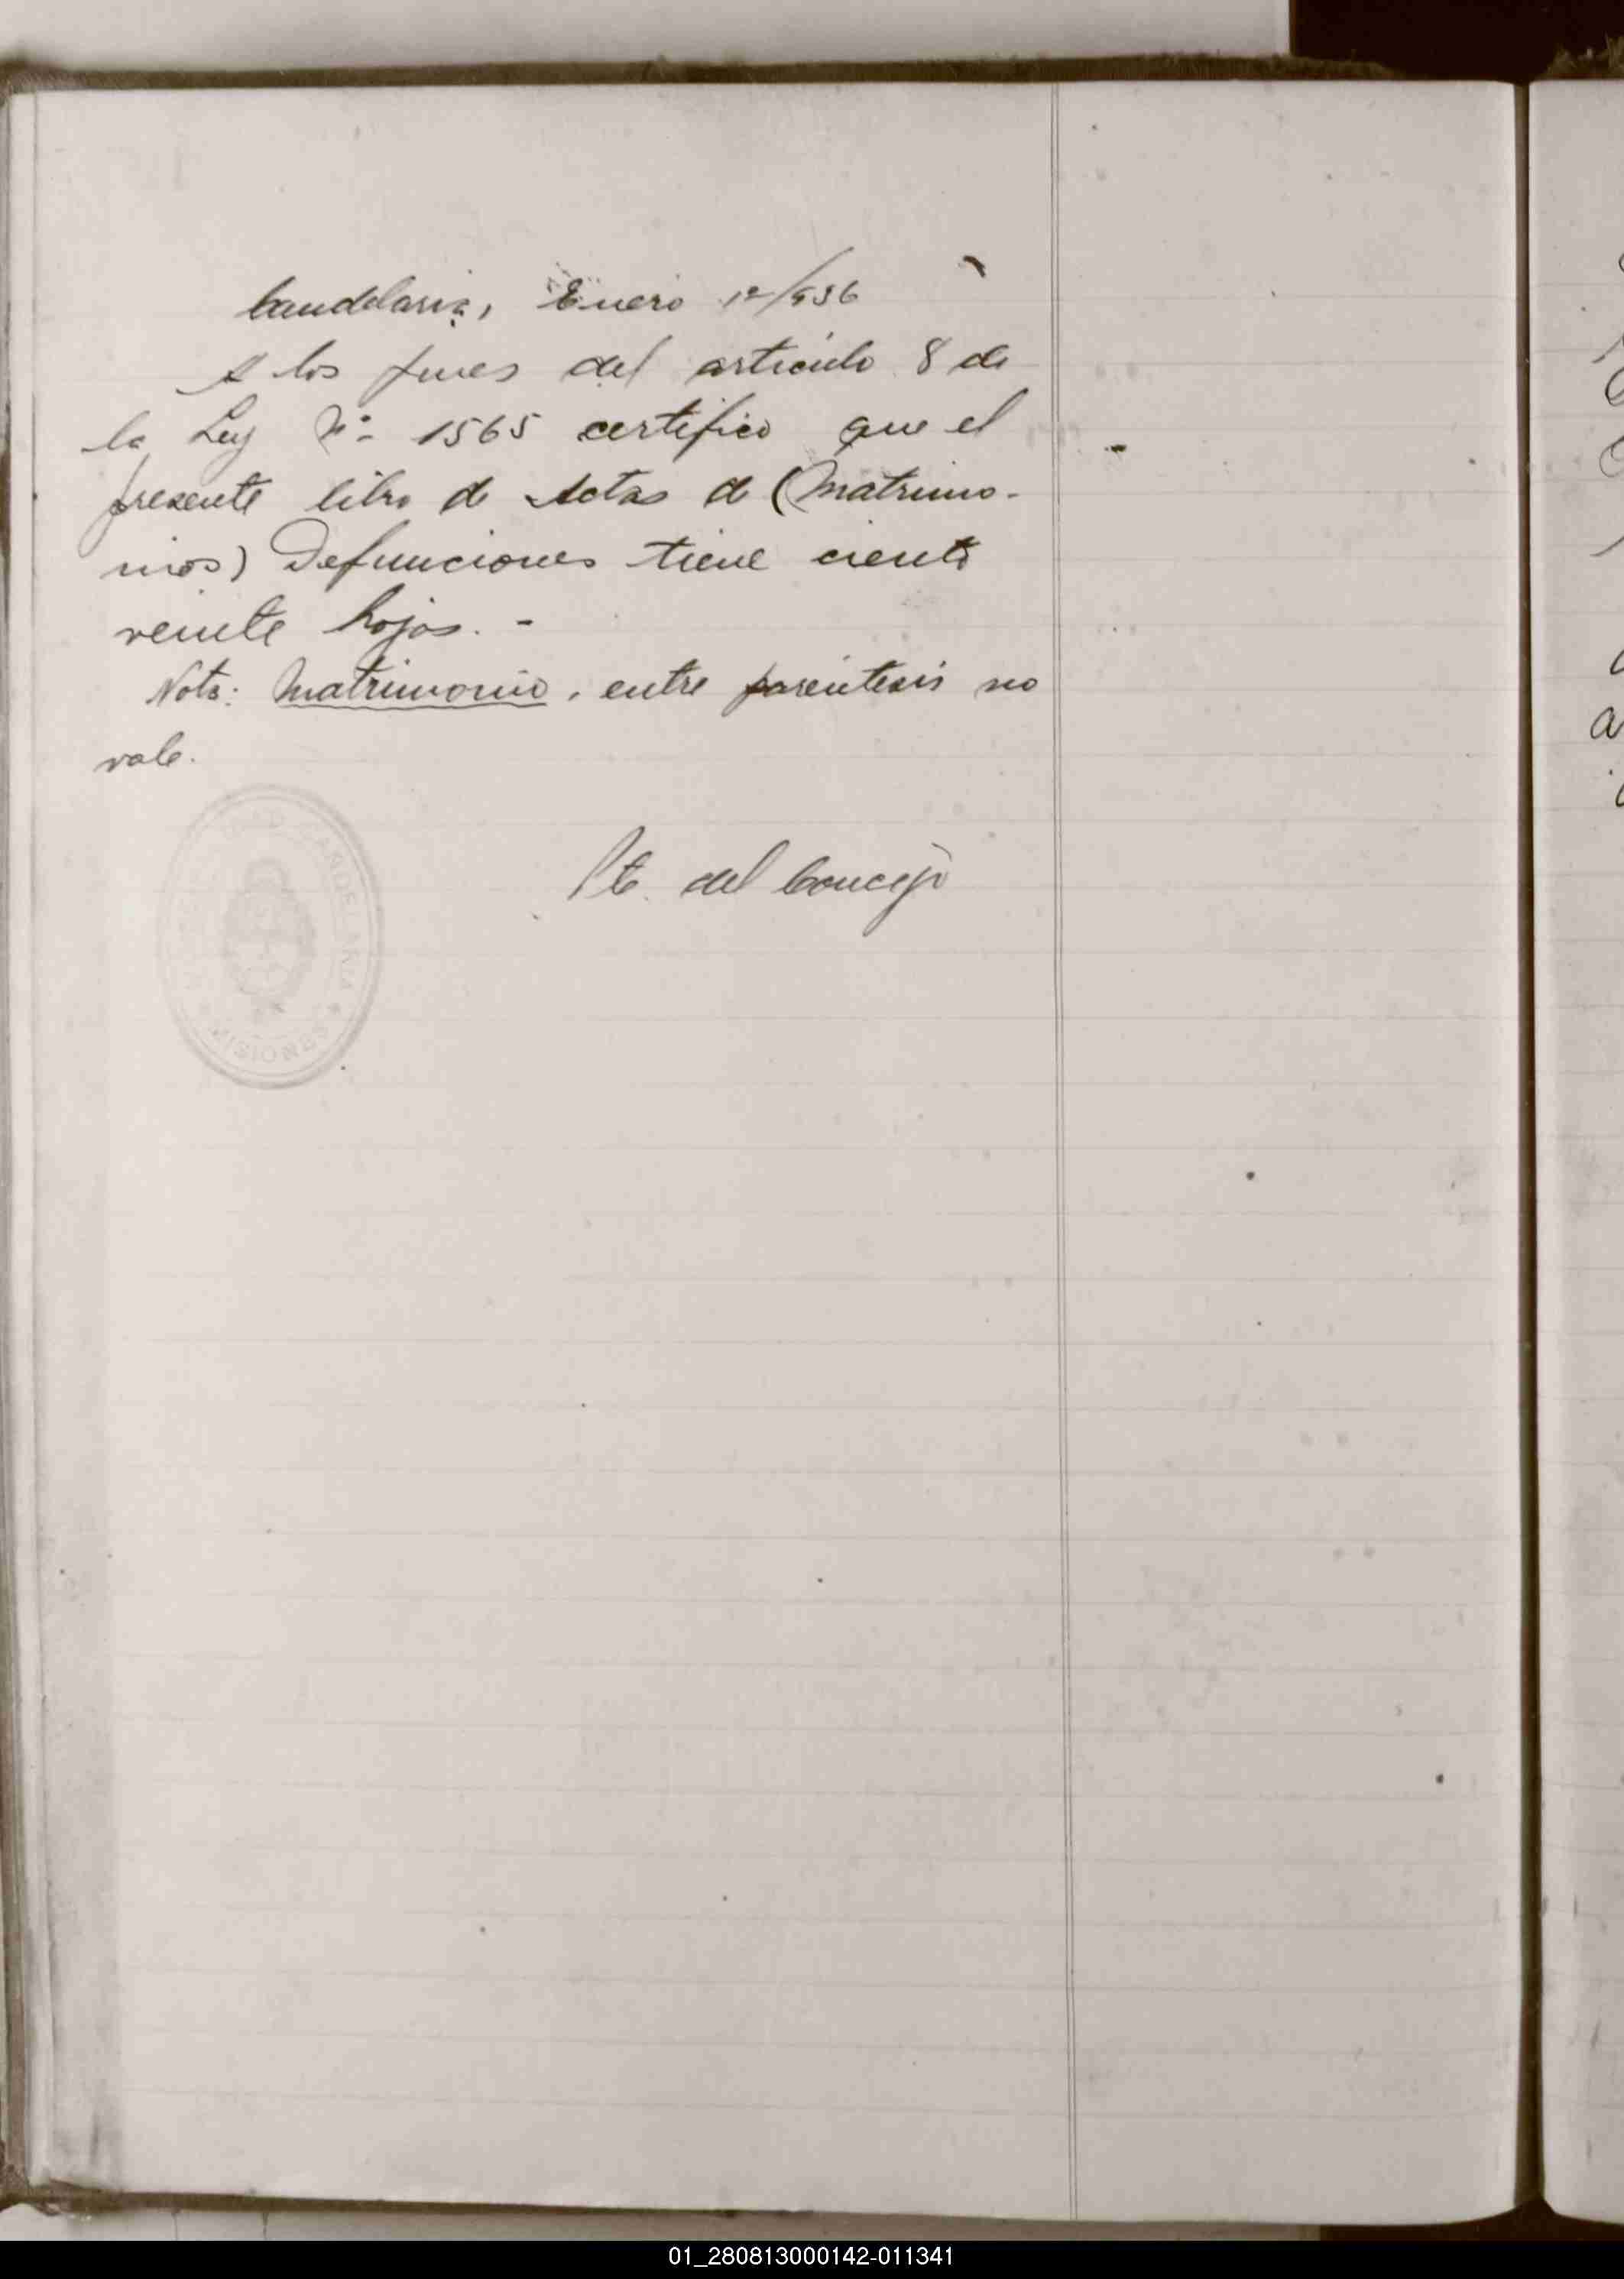 Candelaria, Enero 1º/936
A los fines del articulo 8 de
la Ley Nº- 1565 certifico que el
presente libro de Actas de (Matrimo-
nios) Defunciones tiene ciento
veinte hojas. -
Nota: Matrimonio, entre paréntesis no
vale.
Pte. del Concejo
CANDELARIA
MISIONES
01_280813000142-011341